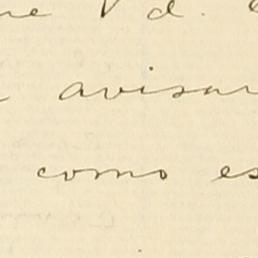 Vd.
avisar
como es